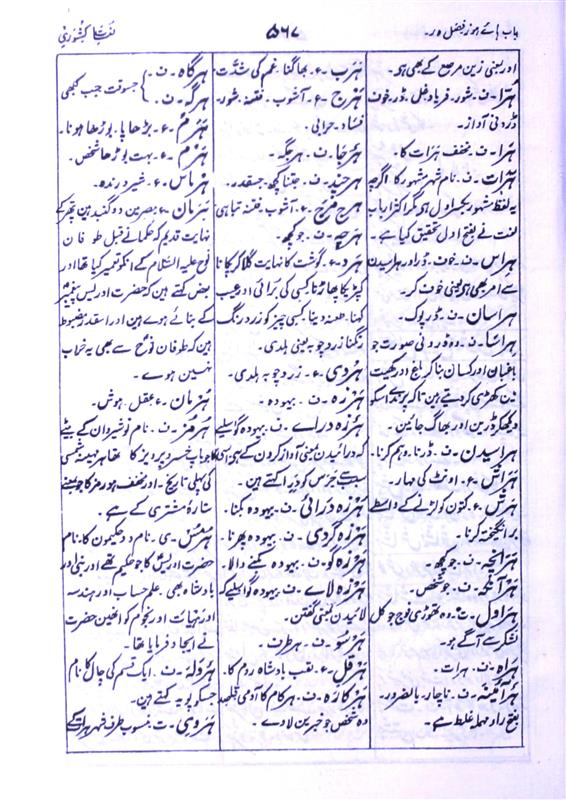 باب ہائے ہوز فصل ہ ر
۵۶۷
لغات کشوری
اور یعنی زین مرصع کے بھی ہو۔
ہَرَا۔ ف۔ شور۔ فریاد۔ غل۔ ڈر۔ خوف
ڈرونی آواز۔
ہرا۔ ن۔ مخفف ہرات کا۔
ہَرات۔ ف۔ نام شہر مشہور کا اگرچہ
یہ لفظ مشہور بکسر اول ہو مگر اکثر ارباب
لغت نے بفتح اول تحقیق کیا ہے۔
ہراس۔ ف۔ خوف۔ ڈر اور ہراسیدن
سے امر بھی ہو یعنی خوف کر۔
ہراسان۔ ف۔ ڈرپوک۔
ہراسا۔ ن۔ وہ ڈرونی صورت جو
باغبان اور کسان بنا کر باغ اور کھیت
مین کھڑی کر دیتے ہین تاکہ پرندے اسکو
دیکھکر ڈرین اور بھاگ جائین۔
ہراسیدن۔ ف۔ ڈرنا۔ وہم کرنا۔
ہراش۔ ع۔ اونٹ کی مہار۔
ہرش۔ ع۔ کتون کو لڑنے کے واسطے
برانگیختہ کرنا۔
ہرآنچہ۔ ف۔ جو کچھ۔
ہرآنکہ۔ ف۔ جو شخص۔
ہراول۔ ت۔ وہ تھوڑی فوج جو کل
لشکر سے آگے ہو۔
ہراہ۔ ن۔ ہرات۔
ہرآئینہ۔ ف۔ ناچار۔ بالضرور۔
بفتح راء مہملہ غلط ہے۔
ہَرَب۔ ع۔ بھاگنا۔ غم کی شدّت
ہَرَج۔ ع۔ آشوب۔ فتنہ۔ شور۔
فساد۔ خرابی۔
ہرجا۔ ن۔ ہر جگہ۔
ہرچند۔ ف۔ جتنا کچھ۔ جسقدر۔
ہرج مرج۔ ع۔ آشوب۔ فتنہ۔ تباہی
ہرچہ۔ ف۔ جو کچھ۔
ہرد۔ ع۔ گوشت کا نہایت گلا کر پکانا
کپڑے کا پھاڑنا کسی کی برائی اور عیب
کہنا۔ طعنہ دینا۔ کسی چیز کو زرد رنگ
رنگنا زرد چوبہ یعنی ہلدی۔
ہردی۔ ع۔ زرد چوبہ۔ ہلدی۔
ہرزہ۔ ف۔ بیہودہ۔
ہرزہ درائے۔ ف۔ بیہودہ گو اسلیے
کہ درائیدن بمعنی آواز کرنے کے ہی اسی
سبب سے جرس کو درا کہتے ہین۔
ہرزہ درائی۔ ف۔ بیہودہ بکنا۔
ہرزہ گردی۔ ف۔ بیہودہ پھرنا۔
ہرزہ گو۔ ف۔ بیہودہ بکنے والا۔
ہرزہ لاے۔ ف۔ بیہودہ گو اسلیے کہ
لائیدن بمعنی گفتن۔
ہرسو۔ ف۔ ہر طرف۔
ہرقل۔ ع۔ لقب بادشاہ روم کا۔
ہرکارہ۔ ف۔ ہر کام کا آدمی
وہ شخص جو خبرین لاوے۔
ہرگاہ۔ ن۔
ہرگہ۔ ف۔
جسوقت جب کبھی
ہَرَم۔ ع۔ بڑھاپا۔ بوڑھا ہونا۔
ہَرِم۔ ع۔ بہت بوڑھا شخص۔
ہرماس۔ ع۔ شیر درندہ۔
ہَرَمان۔ ع۔ مصر مین دو گنبد ہین پتھر کے
نہایت قدیم کہ حکمانے قبل طوفان
نوح علیہ السلام کے انکو تعمیر کیا تھا اور
بعض کہتے ہین کہ حضرت ادریس پیغمبرؑ
کے بنائے ہوے ہین اور اسقدر مضبوط
ہین کہ طوفان نوحؑ سے بھی یہ خراب
نہین ہوے۔
ہُرمان۔ ع۔ عقل۔ ہوش۔
ہرمز۔ ف۔ نام نوشیروان کے بیٹے
کا جو باپ خسرو پرویز کا تھا اور مہینہ شمسی
کی پہلی تاریخ۔ اور مخفف ہورمز کا جو بمعنی
ستارۂ مشتری کے ہے۔
ہرمس۔ ی۔ نام دو حکیمون کا۔ نام
حضرت ادریسؑ کا جو حکیم تھے اور نبی اور
بادشاہ بھی۔ علم حساب اور ہندسہ
اور ہیأت اور نجوم کو انھین حضرت
نے ایجاد فرمایا تھا۔
ہرولہ۔ ن۔ ایک قسم کی چال کا نام
جسکو پویہ کہتے ہین۔
ہروی۔ ت۔ منسوب طرف شہر ہرات کے